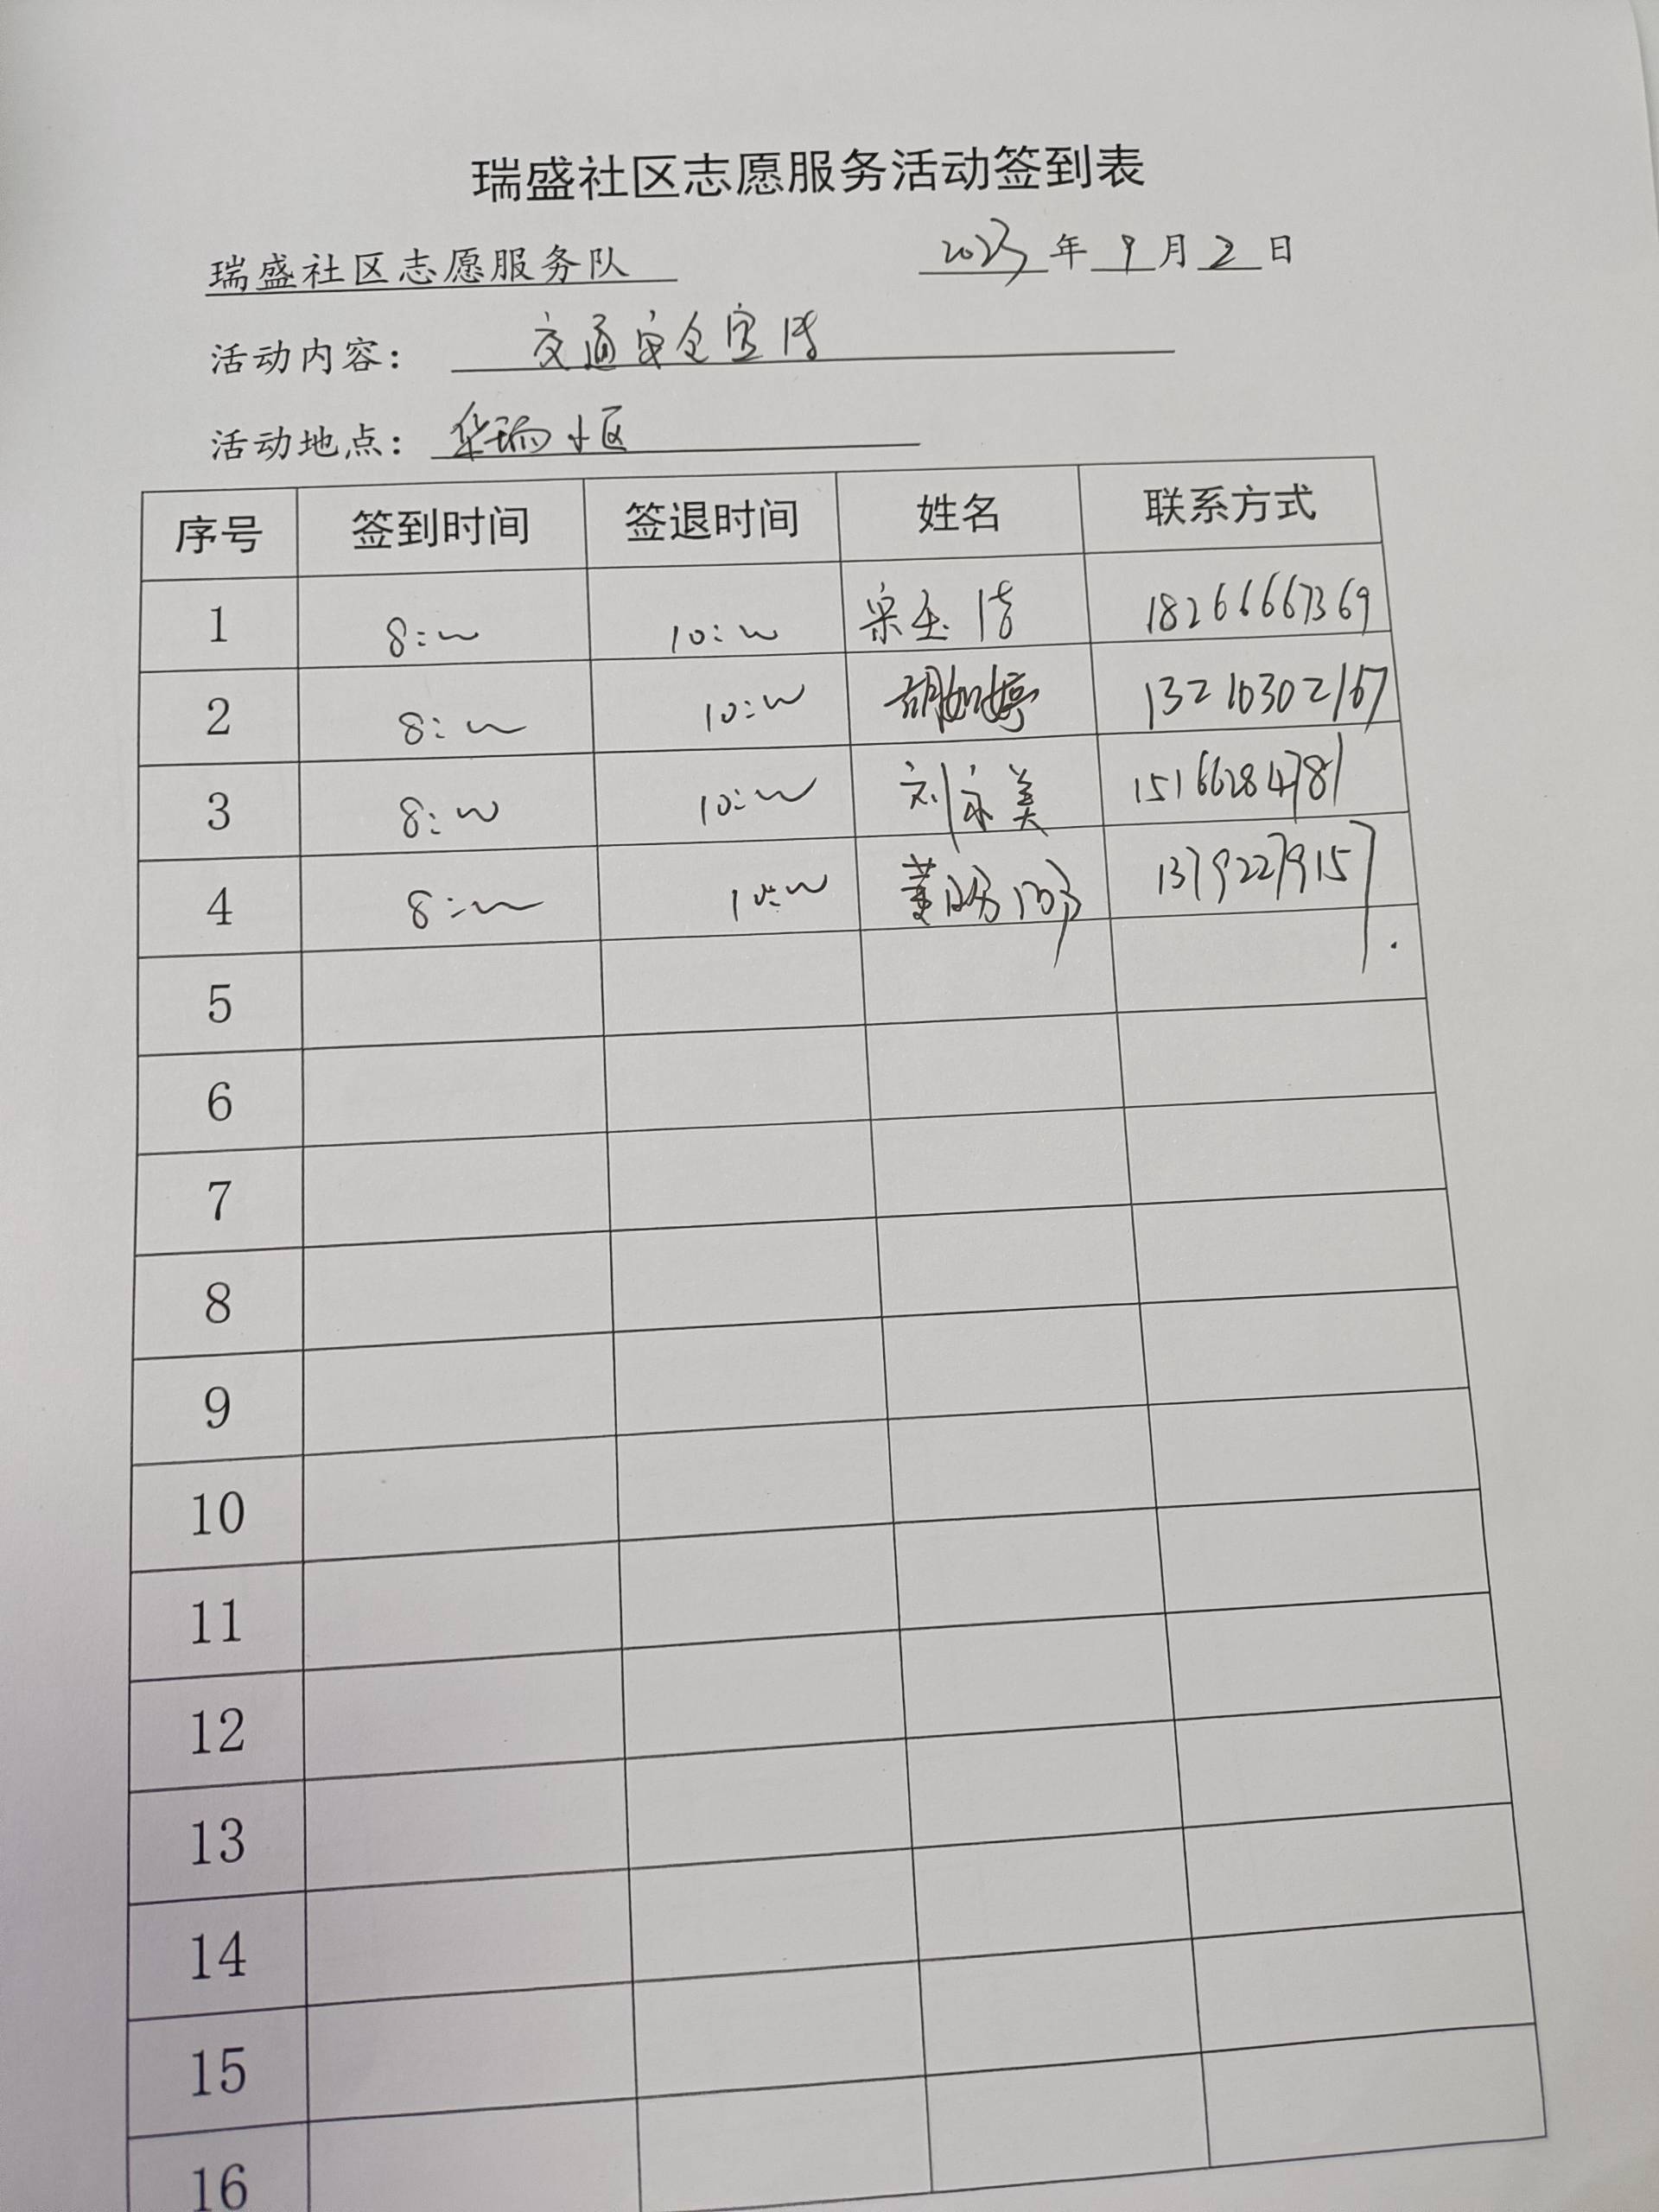 瑞盛社区志愿服务活动签到表
瑞盛社区志愿服务队 2023年9月2日
活动内容： 交通安全宣传
活动地点： 华瑞小区
序号 签到时间 签退时间 姓名 联系方式
1 8:00 10:00 宋玉倩 18266667369
2 8:00 10:00 胡婷 13210302167
3 8:00 10:00 刘永美 15166284781
4 8:00 10:00 董 13792279157
5
6
7
8
9
10
11
12
13
14
15
16